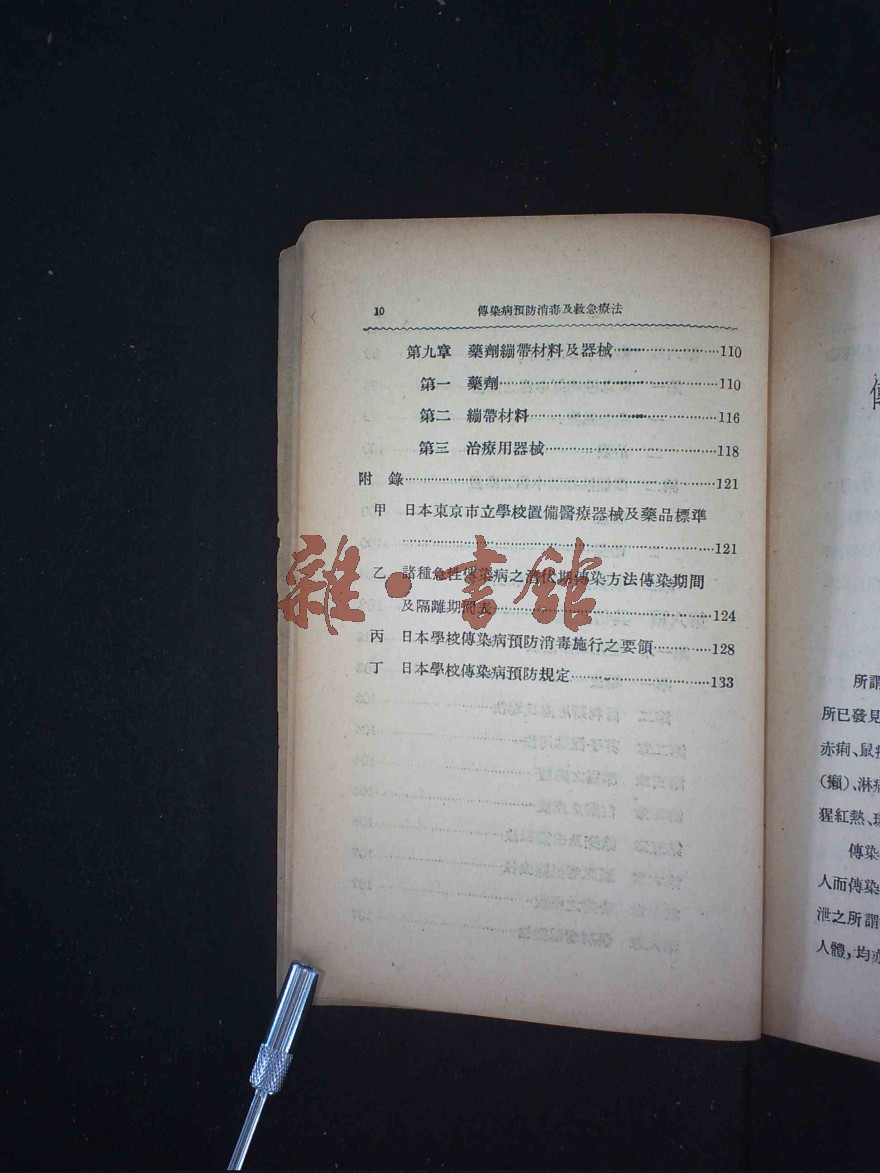 10 傳染病預防消毒及救急療法
第九章 藥劑繃帶材料及器械……………………110
第一 藥劑……………………110
第二 繃帶材料……………………116
第三 治療用器械……………………118
附 錄……………………121
甲 日本東京市立學校置備醫療器械及藥品標準
……………………121
乙 諸種急性傳染病之潛伏期傳染方法傳染期間
及隔離期間表……………………124
丙 日本學校傳染病預防消毒施行之要領…………128
丁 日本學校傳染病預防規定……………………133
雜·書館
所謂
所已發見
赤痢、鼠疫
(癩)、淋病
猩紅熱、
傳染
人而傳染
泄之所謂
人體，均亦